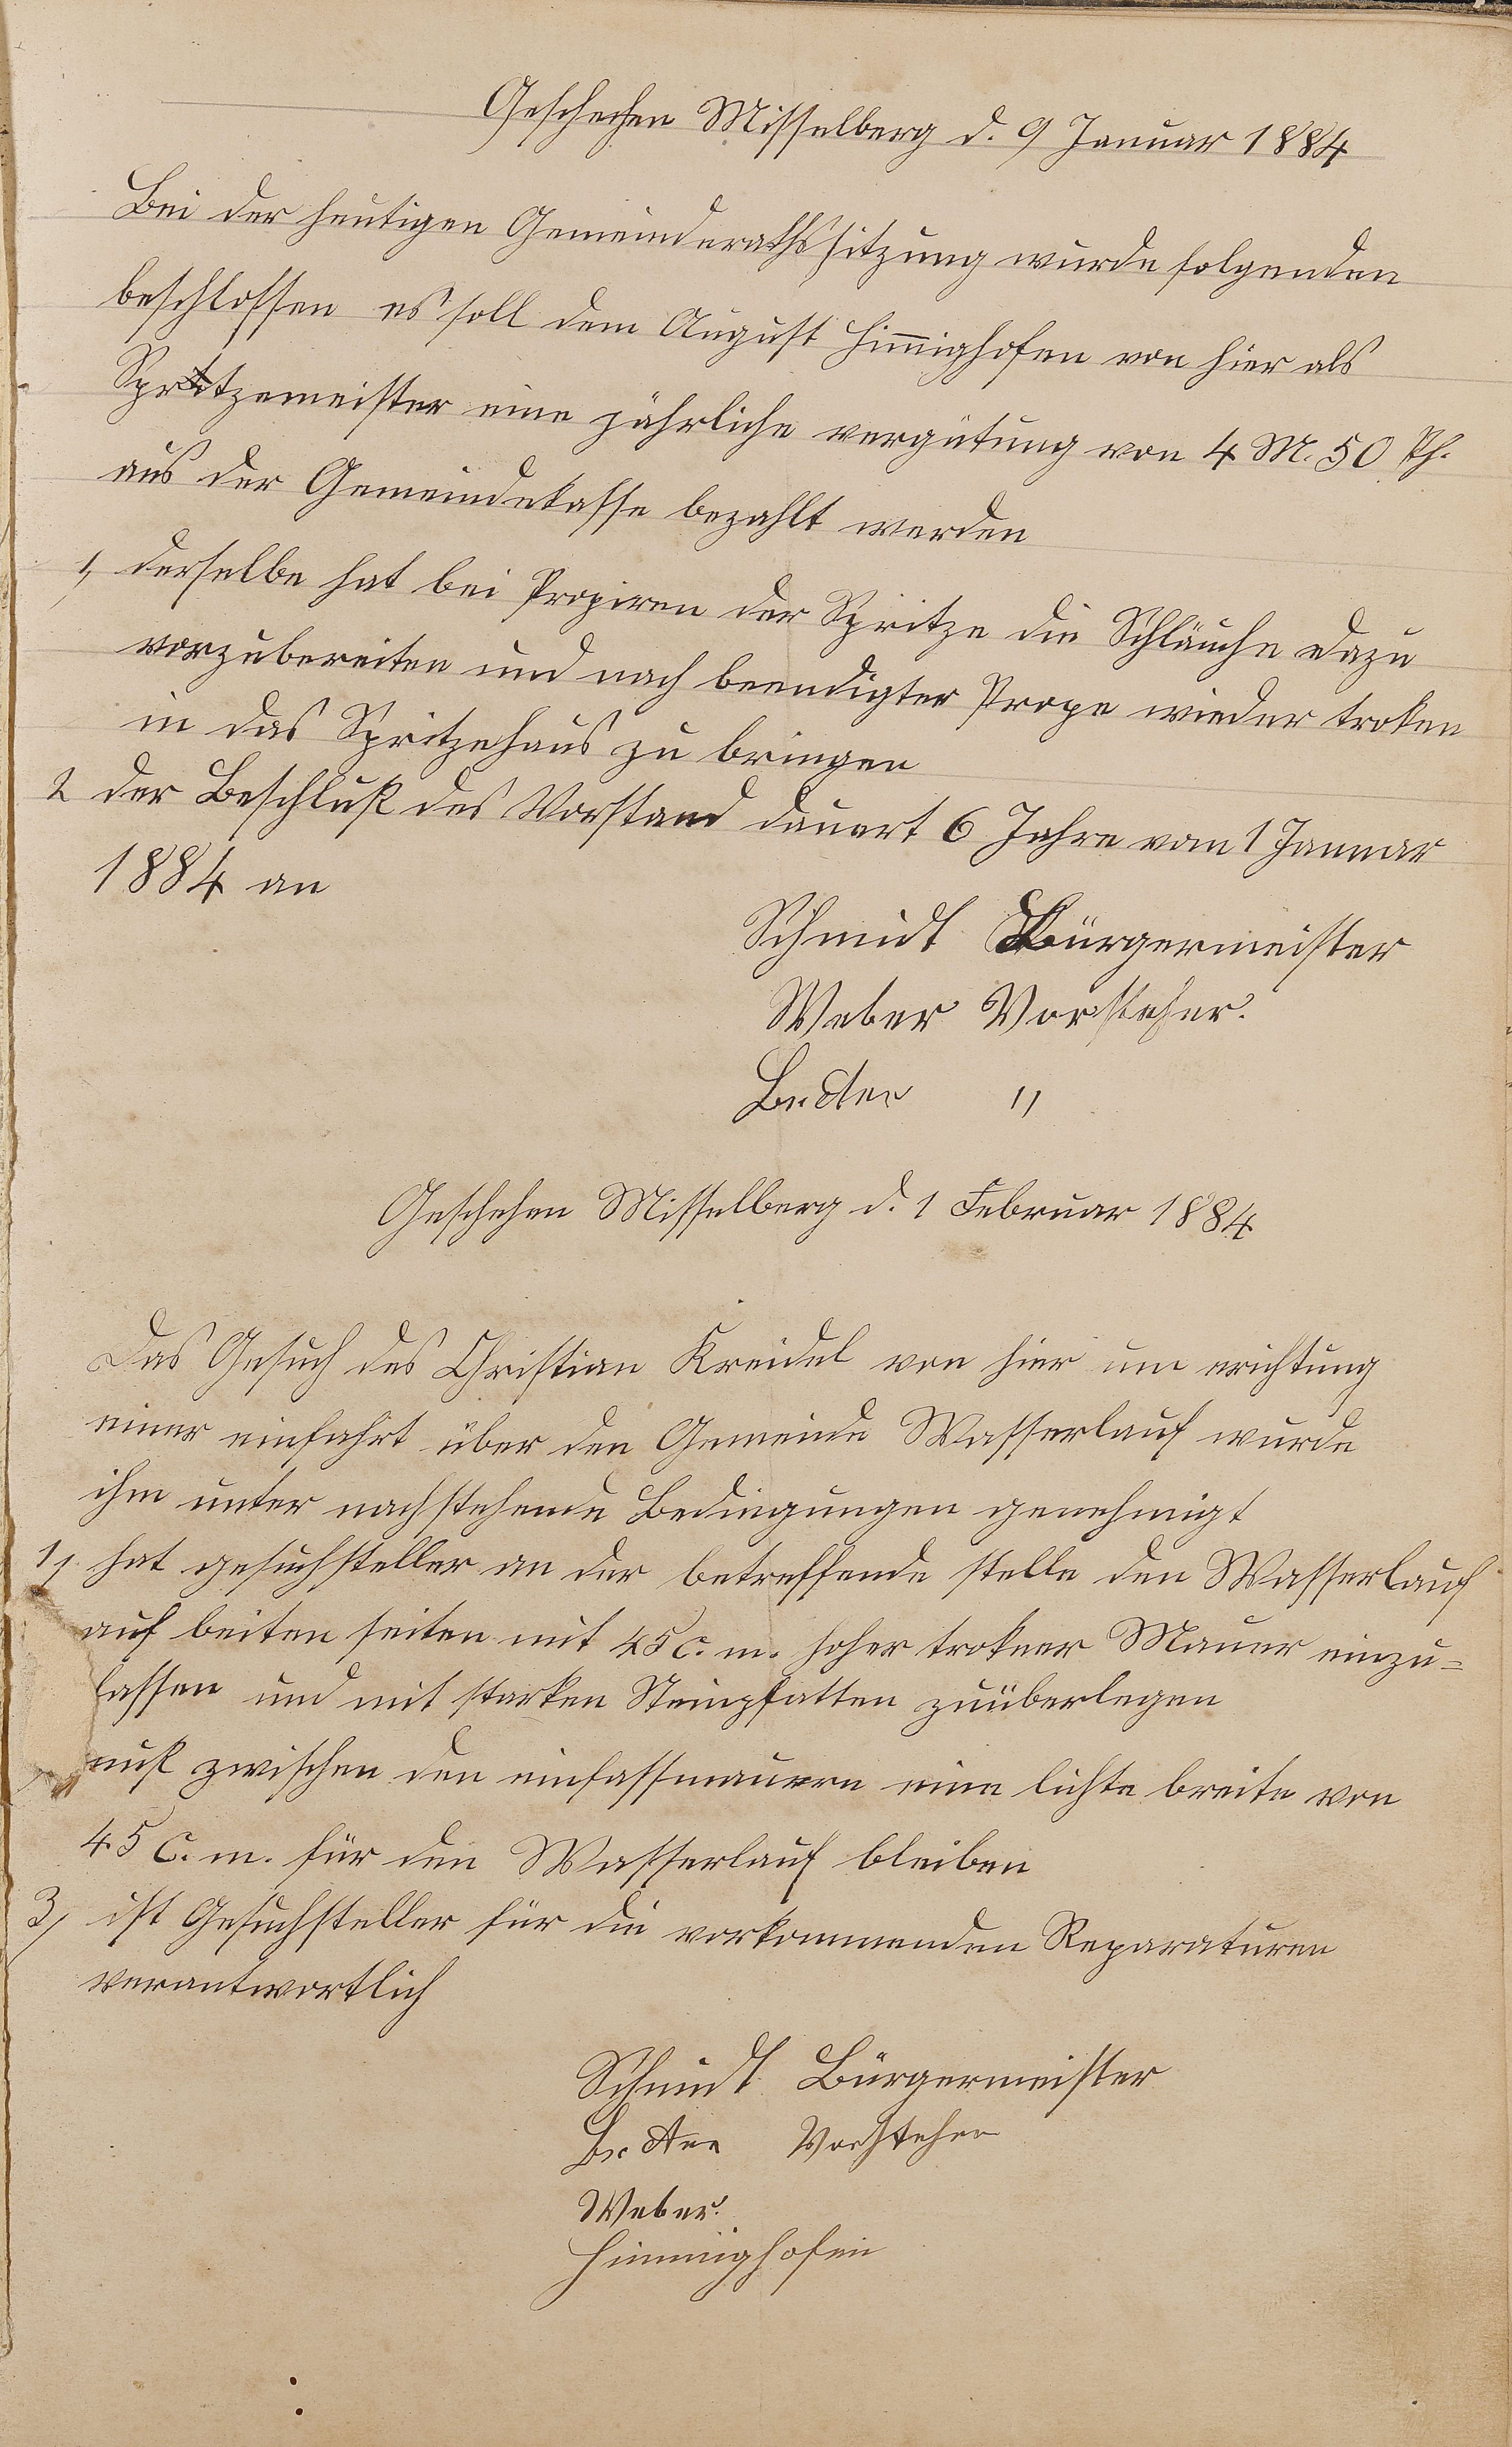 Geschehen Misselberg d. 9 Januar 1884
Bei der heutigen Gemeinderathssitzung wurde folgenden
beschlossen es soll dem August Himighofen von hier als
Spritzemeister eine jährliche vergütung von 4 M. 50 Pf.
aus der Gemeindekasse bezahlt werden
1, derselbe hat bei Propiren der Spritze die Schläuche dazu
vorzubereiten und nach beendigter Prope wieder troken
in das Spritzehaus zu bringen
2 der Beschluß des Vorstand dauert 6 Jahre vom 1 Januar
1884 an
Schmidt Bürgermeister
Weber Vorsteher.
"
Geschehen Misselberg d. 1 Februar 1884
Das Gesuch des Christian Kreidel von hier um erichtung
einer einfahrt über den Gemeinde Wasserlauf wurde
ihm unter nachstehende Bedingungen genehmigt
1, hat gesuchsteller an der betreffende stelle den Wasserlauf
auf beiten seiten mit 45 c. m. hoher trokner Mauer einzu=
fassen und mit starken Steinplatten zuüberlegen
muß zwischen den einfassmauern eine lichte breite von
45 c. m. für den Wasserlauf bleiben
3, ist Gesuchsteller für die vorkommenden Reparaturen
verantwortlich
Schmidt Bürgermeister
Vorsteher
Weber.
Himmighofen